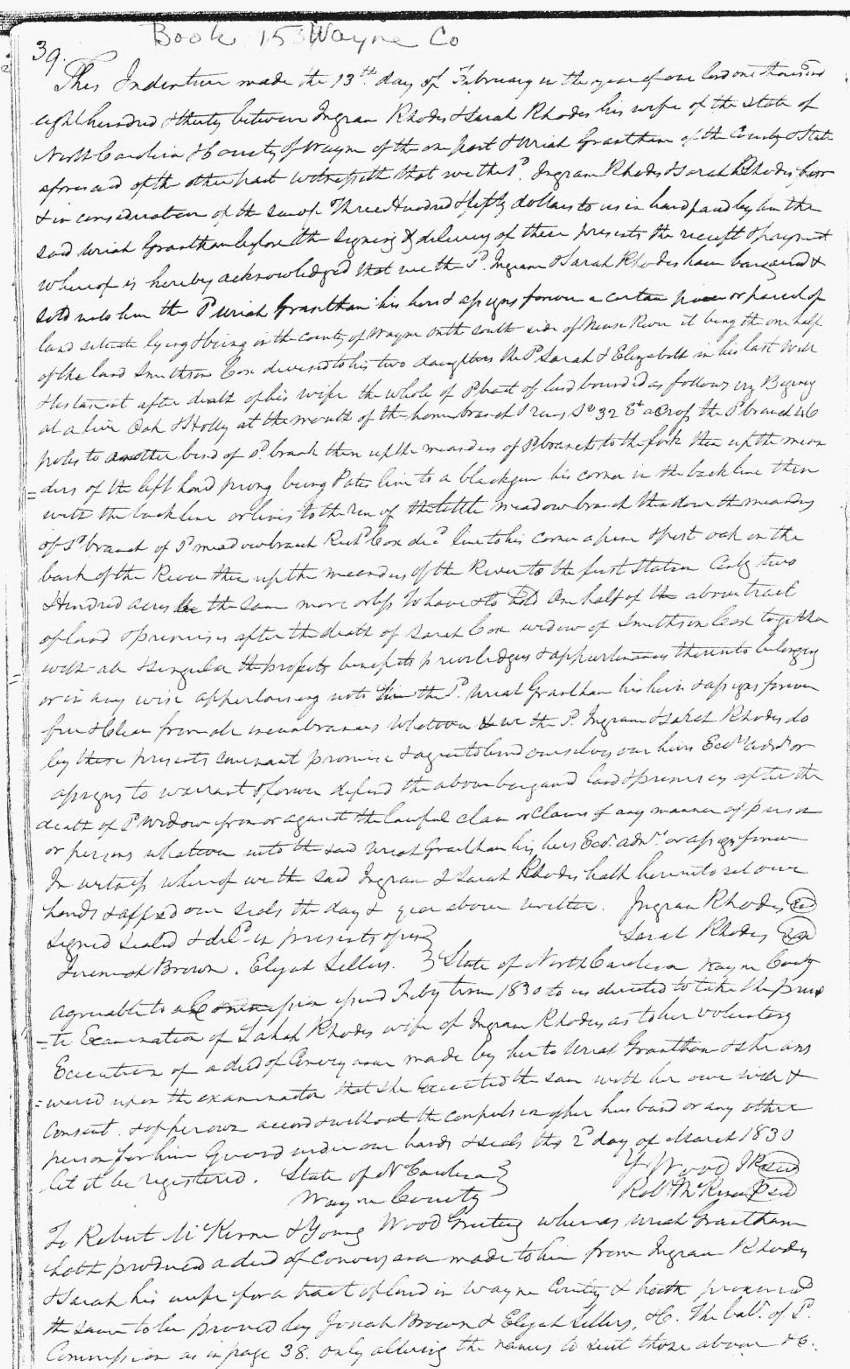 Book 15 Wayne Co
39.
This Indenture made the 13th day of February in the year of our lord one thousand
eight hundred & thirty between Ingram Rhodes & Sarah Rhodes his wife of the state of
North Carolina & County of Wayne of the one part & Uriah Grantham of the County & State
aforesaid of the other part witnesseth that we the Sd. Ingram Rhodes & Sarah Rhodes for
& in consideration of the sum of Three Hundred & fifty dollars to us in hand paid by him the
said Uriah Grantham before the signing & delivery of these presents the receipt & payment
whereof is hereby acknowledged that we the Sd. Ingram & Sarah Rhodes have bargained &
sold unto him the Sd Uriah Grantham his heirs & assigns forever a certain piece or parcel of
land situate lying & being in the county of Wayne on the south side of Neuse River it being the one half
of the land Smithson Cox devised to his two daughters the Sd Sarah & Elizabeth in his last Will
& testament after death of his wife the whole of Sd tract of land bounded as follows viz Beging
at a live Oak & Holly at the mouth of the branch & runs So 32 Et across the Sd branch 46
poles to another bend of Sd. branch then up the meanders of Sd branch to the fork then up the mean
=ders of the left hand prong being Pates line to a blackgum his corner in the back line then
with the back line or lines to the run of the little meadow branch then down the meanders
of Sd. branch of Sd meadow branch Richd Cox decd line to his corner a pine & post oak on the
bank of the River then up the meanders of the River to the first station Contg two
Hundred acres be the same more or less To have & to hold One half of the above tract
of land & premises after the death of Sarah Cox widow of Smithson Cox together
with all & singular the profits benefits priviledges & appurtenances thereunto belonging
or in any wise appertaining unto him the Sd. Uriah Grantham his heirs & assigns forever
free & Clear from all incumbrances whatever & we the Sd. Ingram & Sarah Rhodes do
by these presents covenant promise & agree to bind ourselves our heirs Exors admrs or
assigns to warrant & forever defend the above bargaind land & premises after the
death of Sd widow from or against the lawful claim or claims of any manner of person
or persons whatever unto the said Uriah Grantham his heirs Exors. admrs. or assigns forever
In witness whereof we the said Ingram & Sarah Rhodes hath hereunto set our
hands & affixed our seals the day & year above written. Ingram Rhodes seal
Signed sealed & deld. in presents of us } Sarah Rhodes seal
Jeremiah Brown. Elijah Sellers. } State of North Carolina Wayne County
agreeable to a Commission issued Feby term 1830 to us directed to take the priva
=te Examination of Sarah Rhodes wife of Ingram Rhodes as to her voluntary
Execution of a deed of Conveyance made by her to Uriah Grantham & she ans
=wered upon the examination that she Executed the same with her own will &
Consent. & of her own accord & without the compulsion of her husband or any other
person for him Given under our hands & seals this 2d day of March 1830
let it be registered. State of N Carolina } Y Wood JP seal
Wayne County } Robt McKinne seal
To Robert McKinne & Young Wood Greeting whereas Uriah Grantham
hath produced a deed of conveyance made to him from Ingram Rhodes
& Sarah his wife for a tract of land in Wayne County & hath procured
the same to be proved by Brown & Elijah Sellers, &C. The bale. of Sd.
Commission as in page 38. only altering the names to suit those above &C.